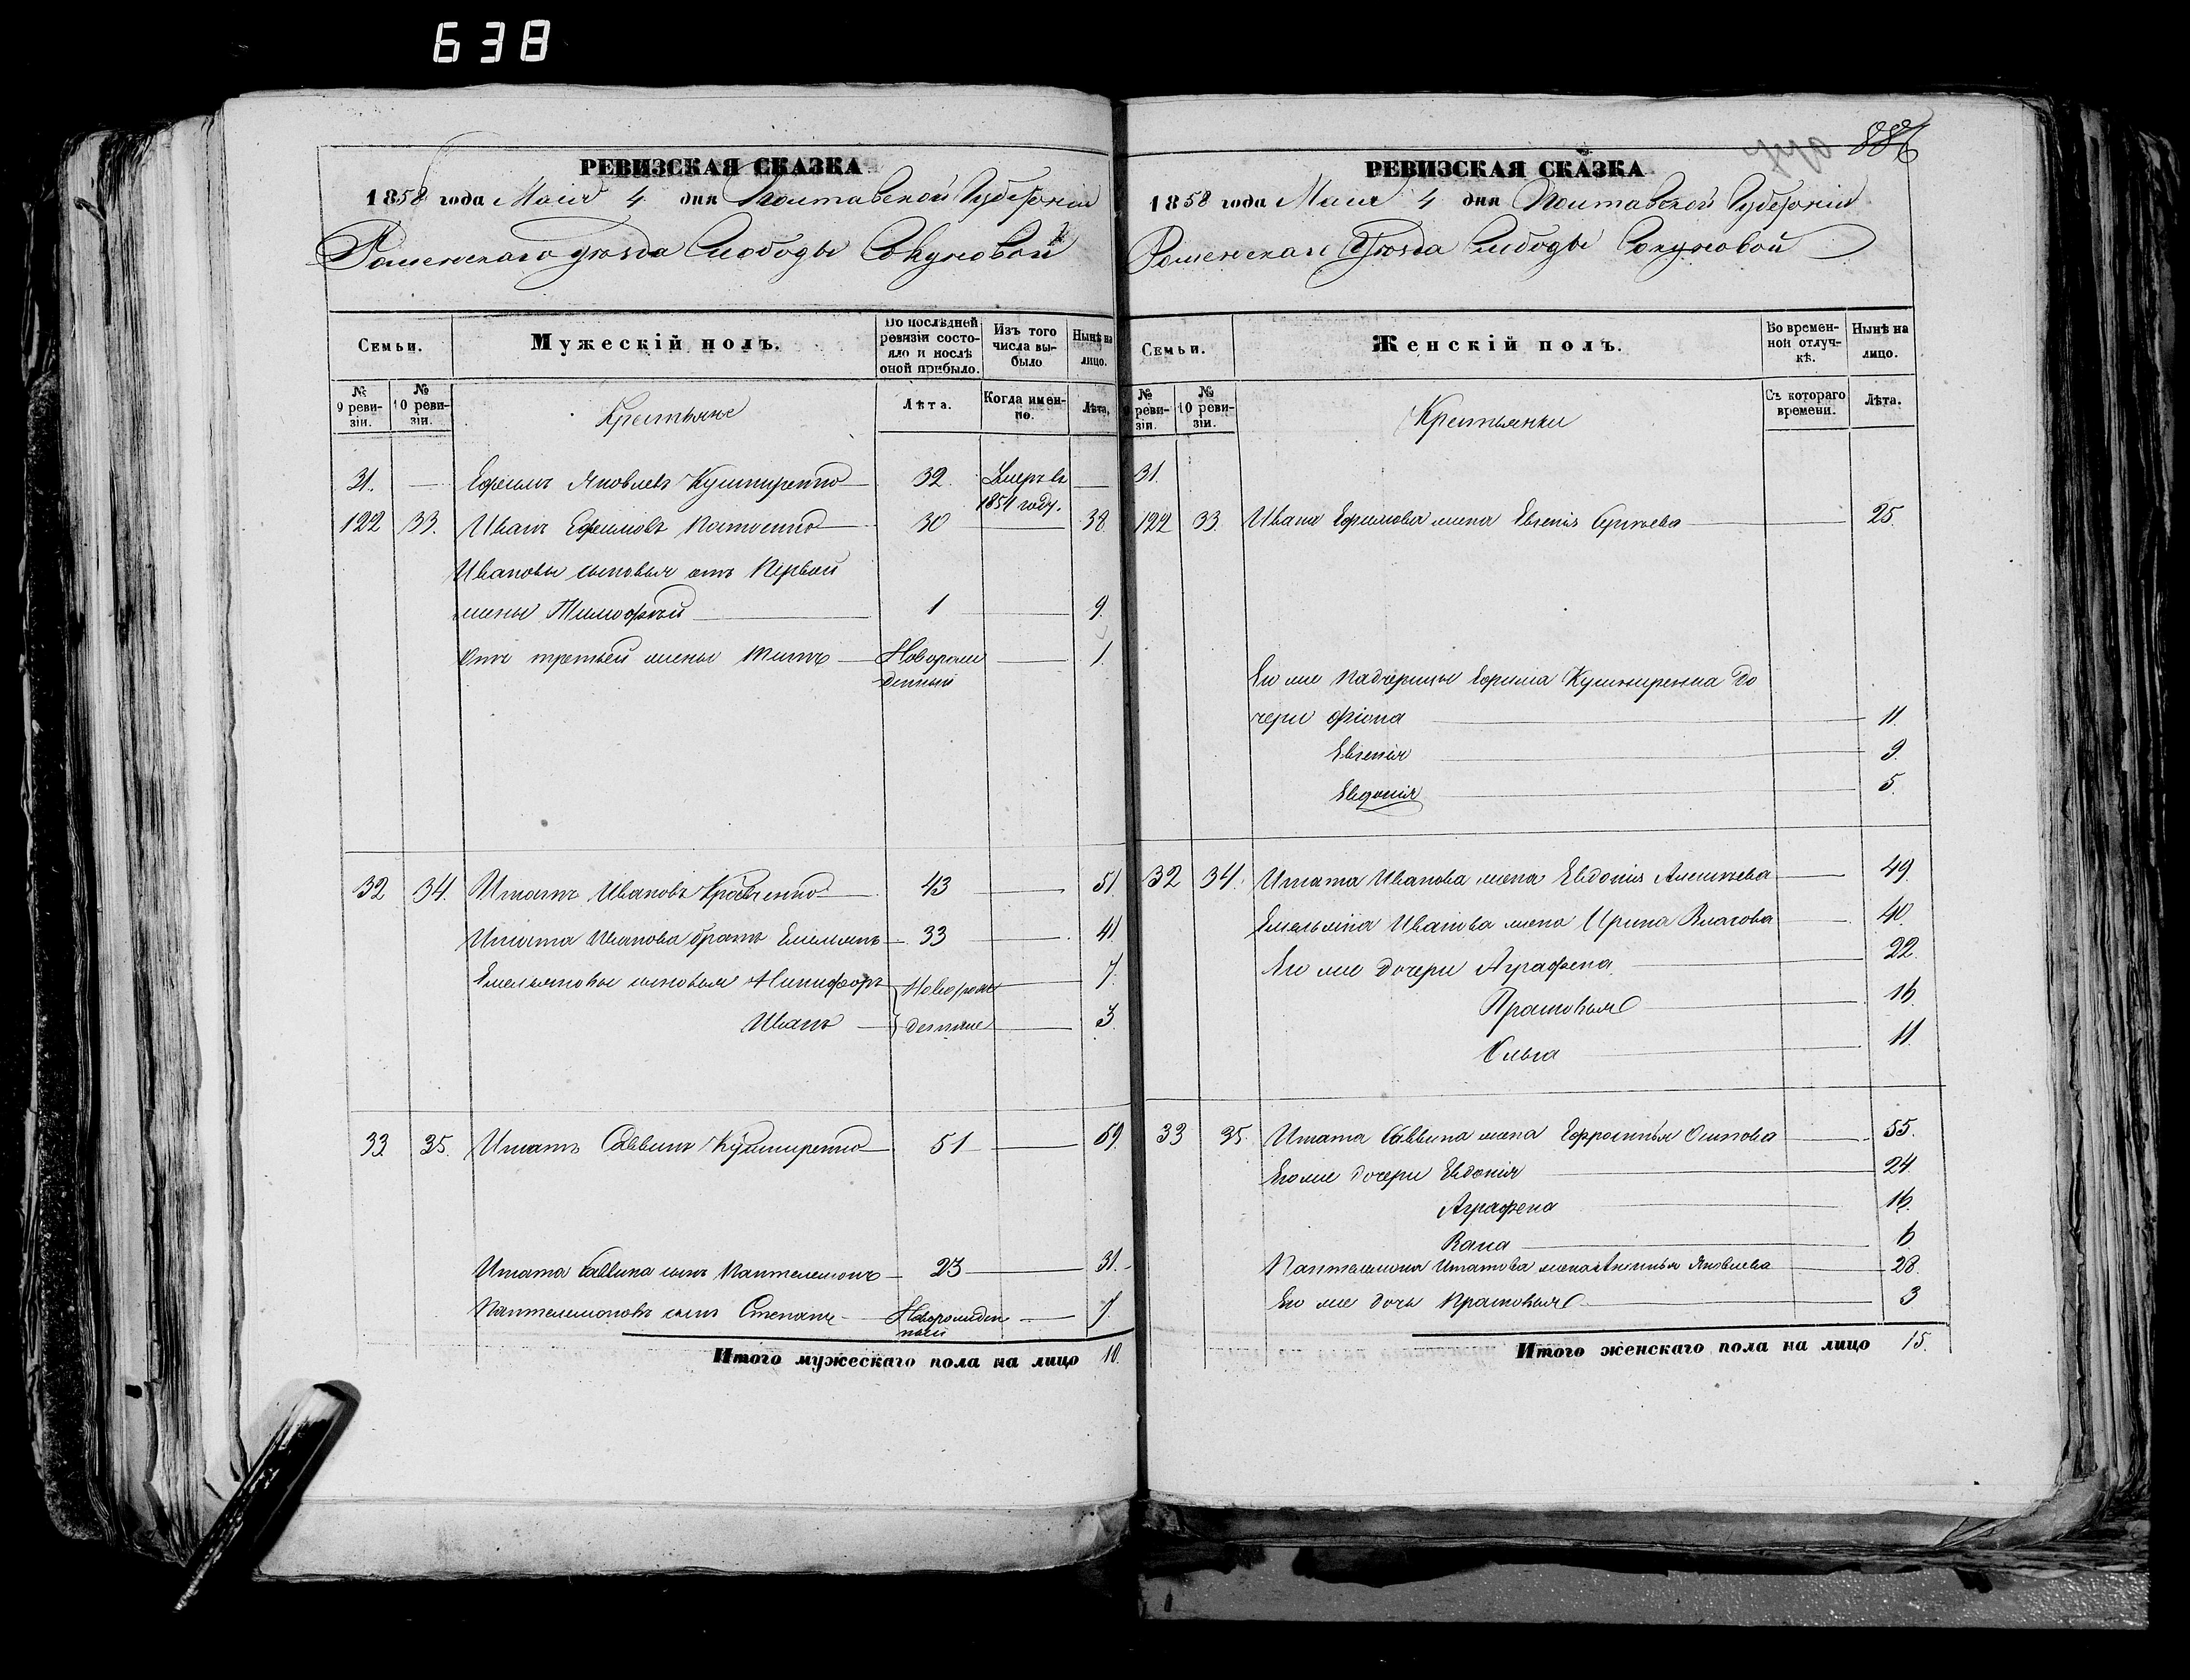 638
РЕВИЗСКАЯ СКАЗКА
1858 года Маія 4 дня Полтавской Губерніи
Роменскаго уѣзда Слободы Сокуновой
Семьи.
Мужескій полъ.
Во послѣдней ревизіи состояло и послѣ оной прибыло.
Изъ того числа выбыло
Нынѣ на лицо.
№ 9 ревизіи.
№ 10 ревизіи.
Крестьяне
Лѣта.
Когда именно.
Лѣта.
31. — Ефимъ Яковлевъ Кушниренко 32 Умеръ въ 1854 году. —
122 33. Иванъ Ефимовъ 30 38
Ивановы сыновья отъ первой
жены Тимофѣй 1 9.
Отъ третьей жены Титъ Новорожденный 1.
32 34. Игнатъ Ивановъ Кравченко 43 51.
Игната Иванова братъ Емельянъ 33 41
Емельяновы сыновья Никифоръ Новорож 7.
Иванъ денные 3.
33 35. Игнатъ Саввинъ Кушниренко 51 59.
Игната Саввина сынъ Пантелемонъ 23 31.
Пантелемоновъ сынъ Степанъ Новорожденный 7.
Итого мужескаго пола на лицо 10.
886
РЕВИЗСКАЯ СКАЗКА
1858 года Маія 4 дня Полтавской Губерніи
Роменскаго Уѣзда Слободы Сокуновой
Семьи.
Женскій полъ.
Во временной отлучкѣ.
Нынѣ на лицо.
№ 9 ревизіи.
№ 10 ревизіи.
Крестьянки
Съ котораго времени.
Лѣта.
31.
122 33. Ивана Ефимова жена Евгенія Сергѣева 25.
Его же падчерицы Ефима Кушниренка до
чери Фіона 11.
Евгенія 9.
Евдокія 5.
32 34. Игната Иванова жена Евдокія Алексѣева 49.
Емельяна Иванова жена Ирина Власова 40.
Его же дочери Аграфена 22.
Прасковья 16.
Ольга 11.
33 35. Игната Саввина жена Ефросинья Осипова 55.
Его же дочери Евдокія 24.
Аграфена 16.
6
Пантелемона Игнатова жена Яковлева 28.
Его же дочь Прасковья 3
Итого женскаго пола на лицо 15.